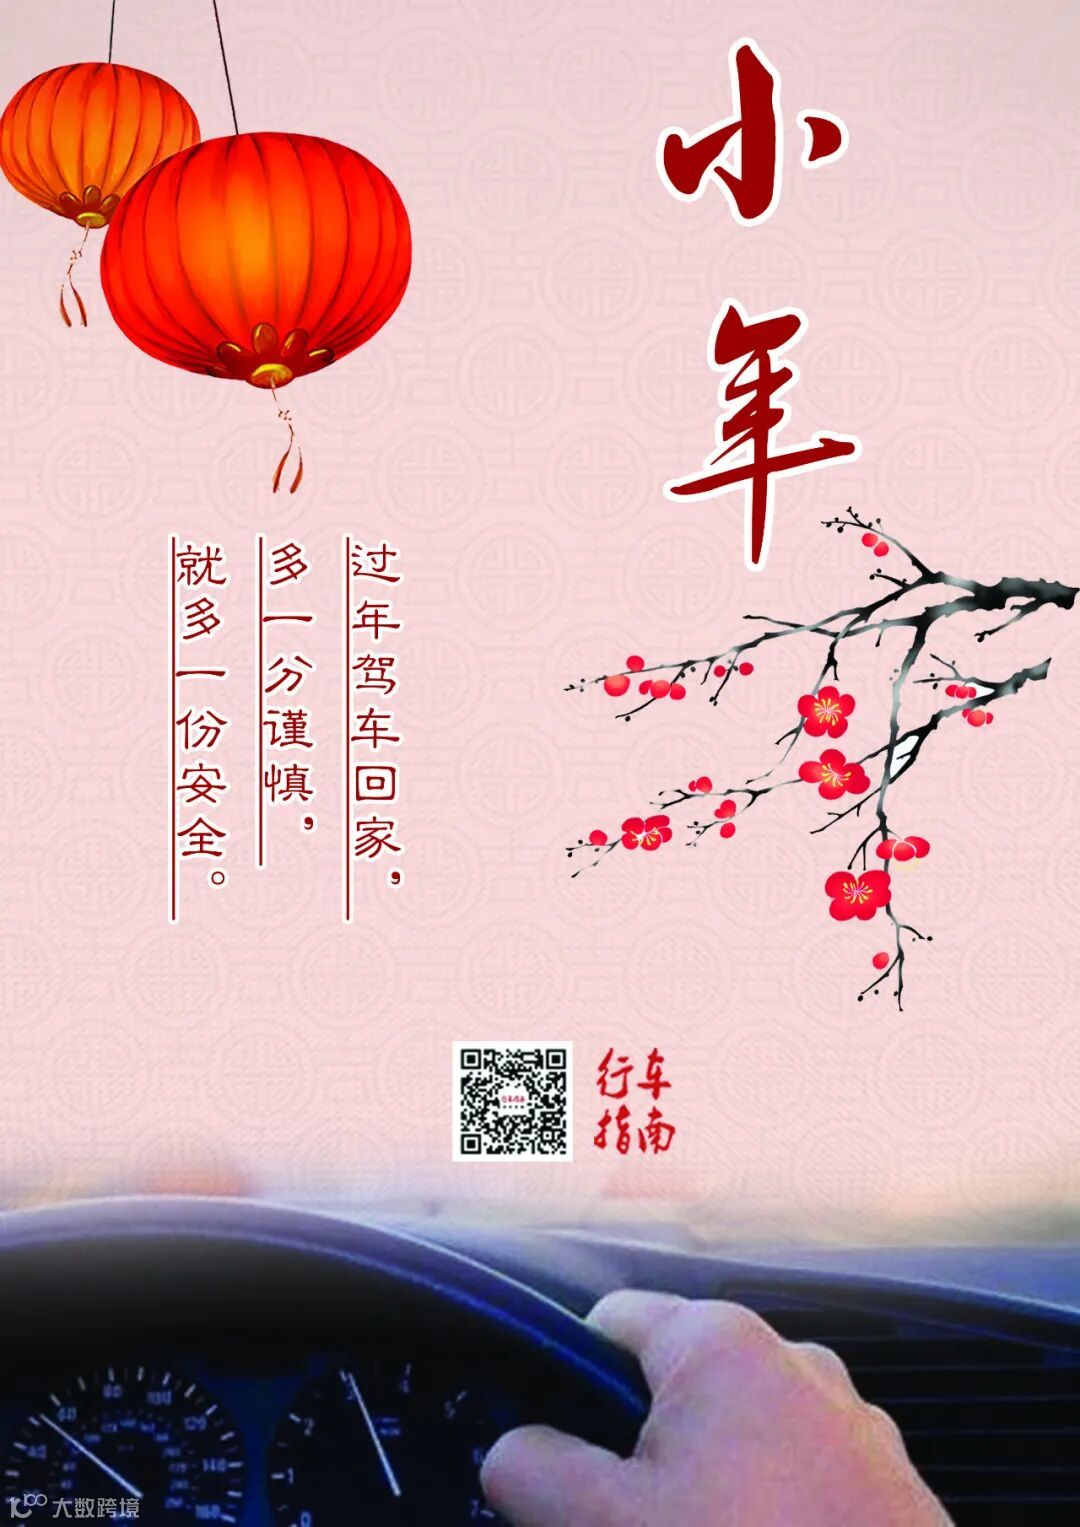 小年
过年驾车回家，
多一分谨慎，
就多一份安全。
行车
指南
大数跨境